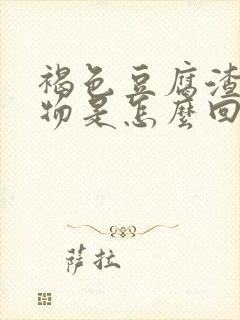 褐色豆腐渣
物是怎麼回
萨拉